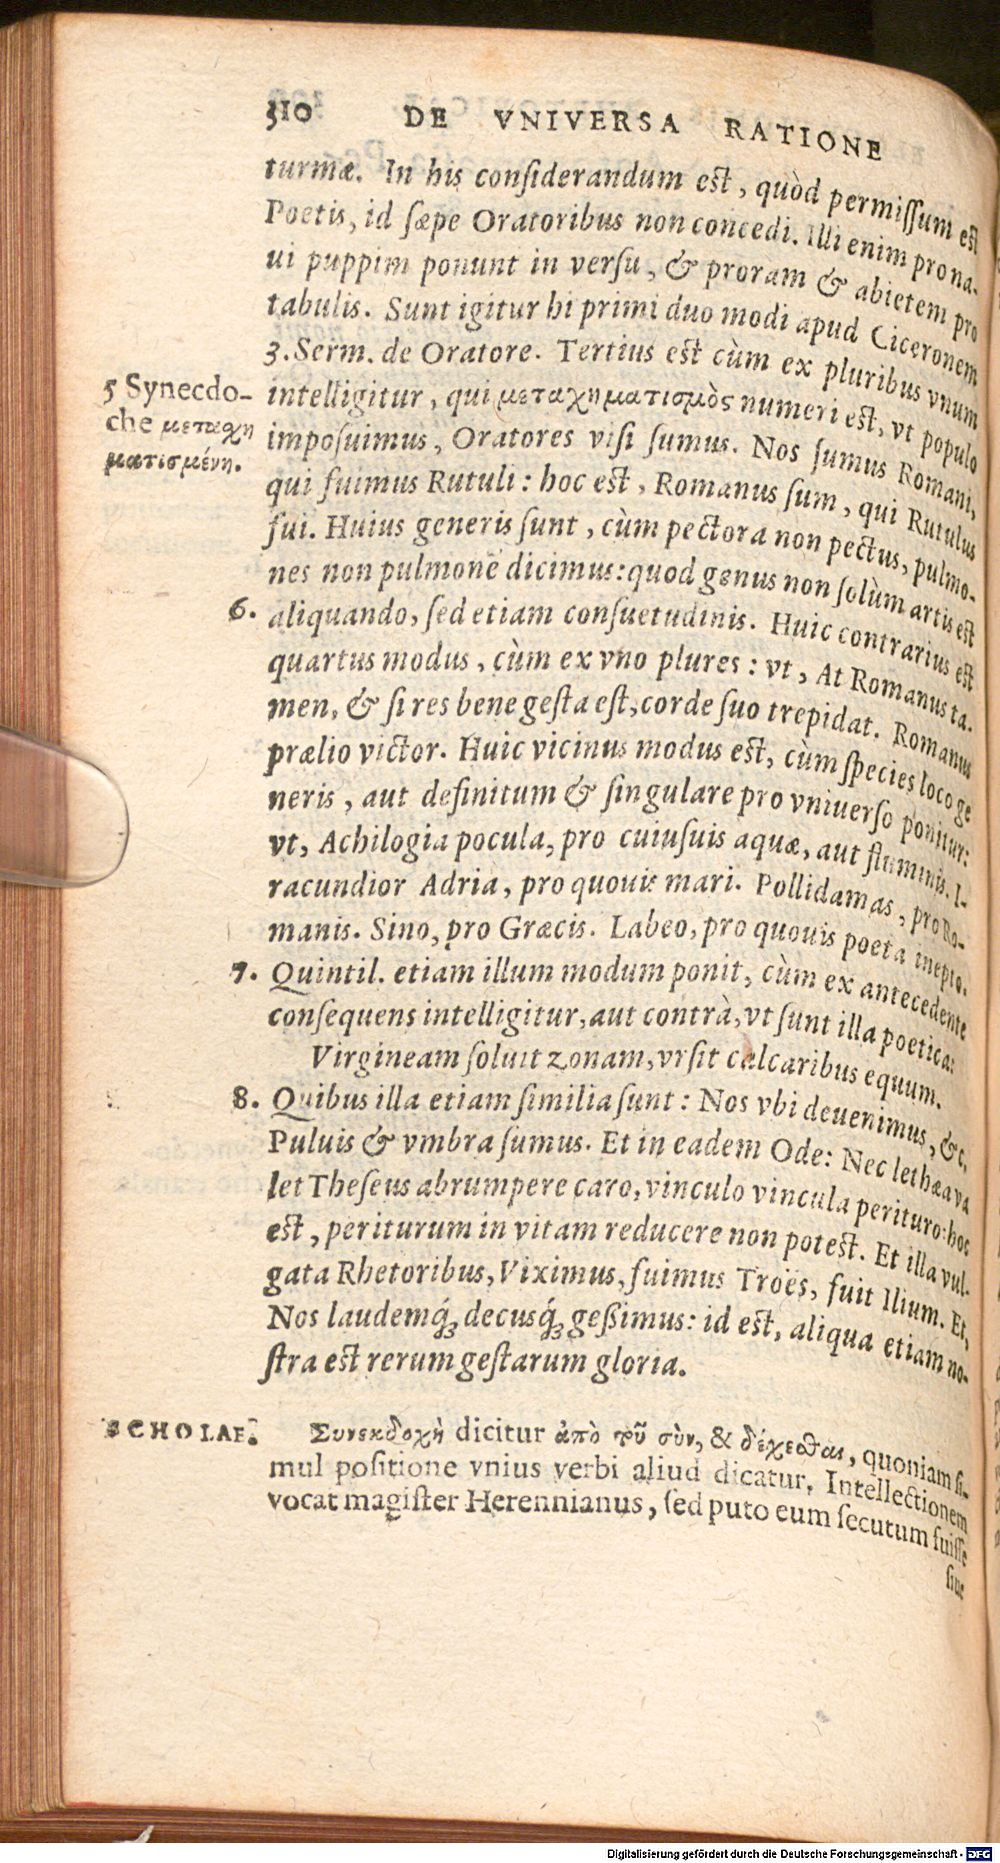 310 DE VNIVERSA RATIONE
turmæ. In his considerandum est, quòd permissum est
Poetis, id sæpe Oratoribus non concedi. Illi enim pro na-
ui puppim ponunt in versu, & proram & abietem pro
tabulis. Sunt igitur hi primi duo modi apud Ciceronem
3. Serm. de Oratore. Tertius est cùm ex pluribus vnum
5 Synecdo-
che μεταχη
ματισμένη.
intelligitur, qui μεταχηματισμὸς numeri est, vt populo
imposuimus, Oratores visi sumus. Nos sumus Romani,
qui fuimus Rutuli: hoc est, Romanus sum, qui Rutulus
fui. Huius generis sunt, cùm pectora non pectus, pulmo-
nes non pulmonē dicimus: quod genus non solùm artis est
6. aliquando, sed etiam consuetudinis. Huic contrarius est
quartus modus, cùm ex vno plures: vt, At Romanus ta-
men, & si res bene gesta est, corde suo trepidat. Romanus
prælio victor. Huic vicinus modus est, cùm species loco ge
neris, aut definitum & singulare pro vniuerso ponitur:
vt, Achilogia pocula, pro cuiusuis aquæ, aut fluminis. I-
racundior Adria, pro quouis mari. Pollidamas, pro Ro-
manis. Sino, pro Græcis. Labeo, pro quouis poeta inepto.
7. Quintil. etiam illum modum ponit, cùm ex antecedente
consequens intelligitur, aut contrà, vt sunt illa poetica:
Virgineam soluit zonam, vrsit calcaribus equum.
8. Quibus illa etiam similia sunt: Nos vbi deuenimus, &c,
Puluis & vmbra sumus. Et in eadem Ode: Nec lethæa va
let Theseus abrumpere caro, vinculo vincula perituro: hoc
est, periturum in vitam reducere non potest. Et illa vul-
gata Rhetoribus, Viximus, fuimus Troës, fuit Ilium. Et,
Nos laudemq́; decusq́; geßimus: id est, aliqua etiam no-
stra est rerum gestarum gloria.
SCHOLAE. Συνεκδοχὴ dicitur ἀπὸ τοῦ σὺν, & δέχεσθαι, quoniam si-
mul positione vnius verbi aliud dicatur, Intellectionem
vocat magister Herennianus, sed puto eum secutum fuisse
siue
Digitalisierung gefördert durch die Deutsche Forschungsgemeinschaft - DFG